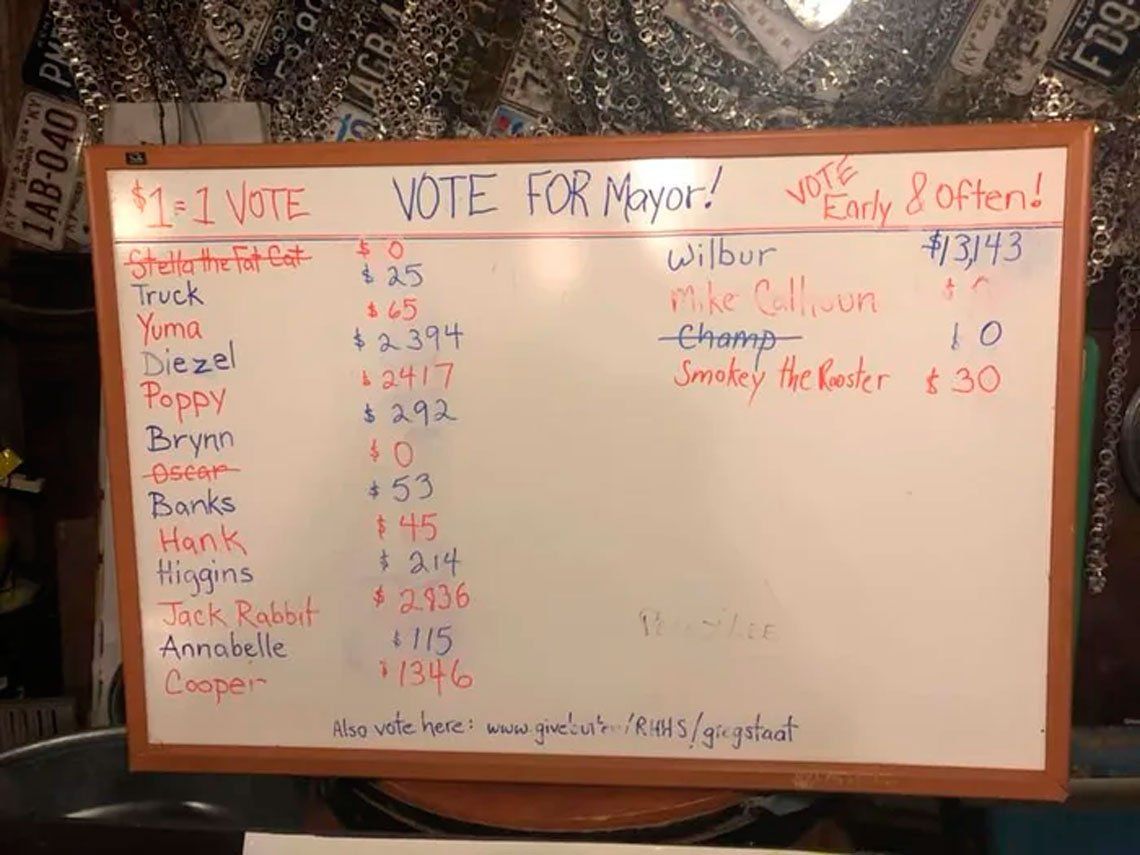 $1=1 VOTE
VOTE FOR Mayor!
VOTE
Early & Often!
Stella the Fat Cat $ 0
Truck $ 25
Yuma $ 65
Diezel $ 2394
Poppy $ 2417
Brynn $ 292
Oscar $ 0
Banks $ 53
Hank $ 45
Higgins $ 214
Jack Rabbit $ 2836
Annabelle $ 115
Cooper $ 1346
Wilbur $13,143
Mike Calhoun $
Champ $ 0
Smokey the Rooster $ 30
Also vote here: /RHHS/gregstaat
1AB-040